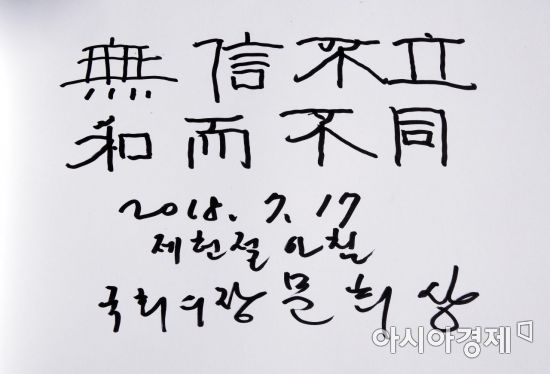 無信不立
和而不同
2018. 7. 17
제헌절 아침
국회의장 문희상
아시아경제